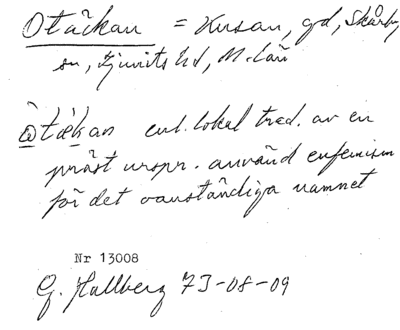 Otäckan = Kusan, gd, Skårby
sn, Ljunits hd, M-län
òtækan enl. lokal trad. av en
präst urspr. använd eufemism
för det oanständiga namnet
Nr 13008
G. Hallberg 73-08-09